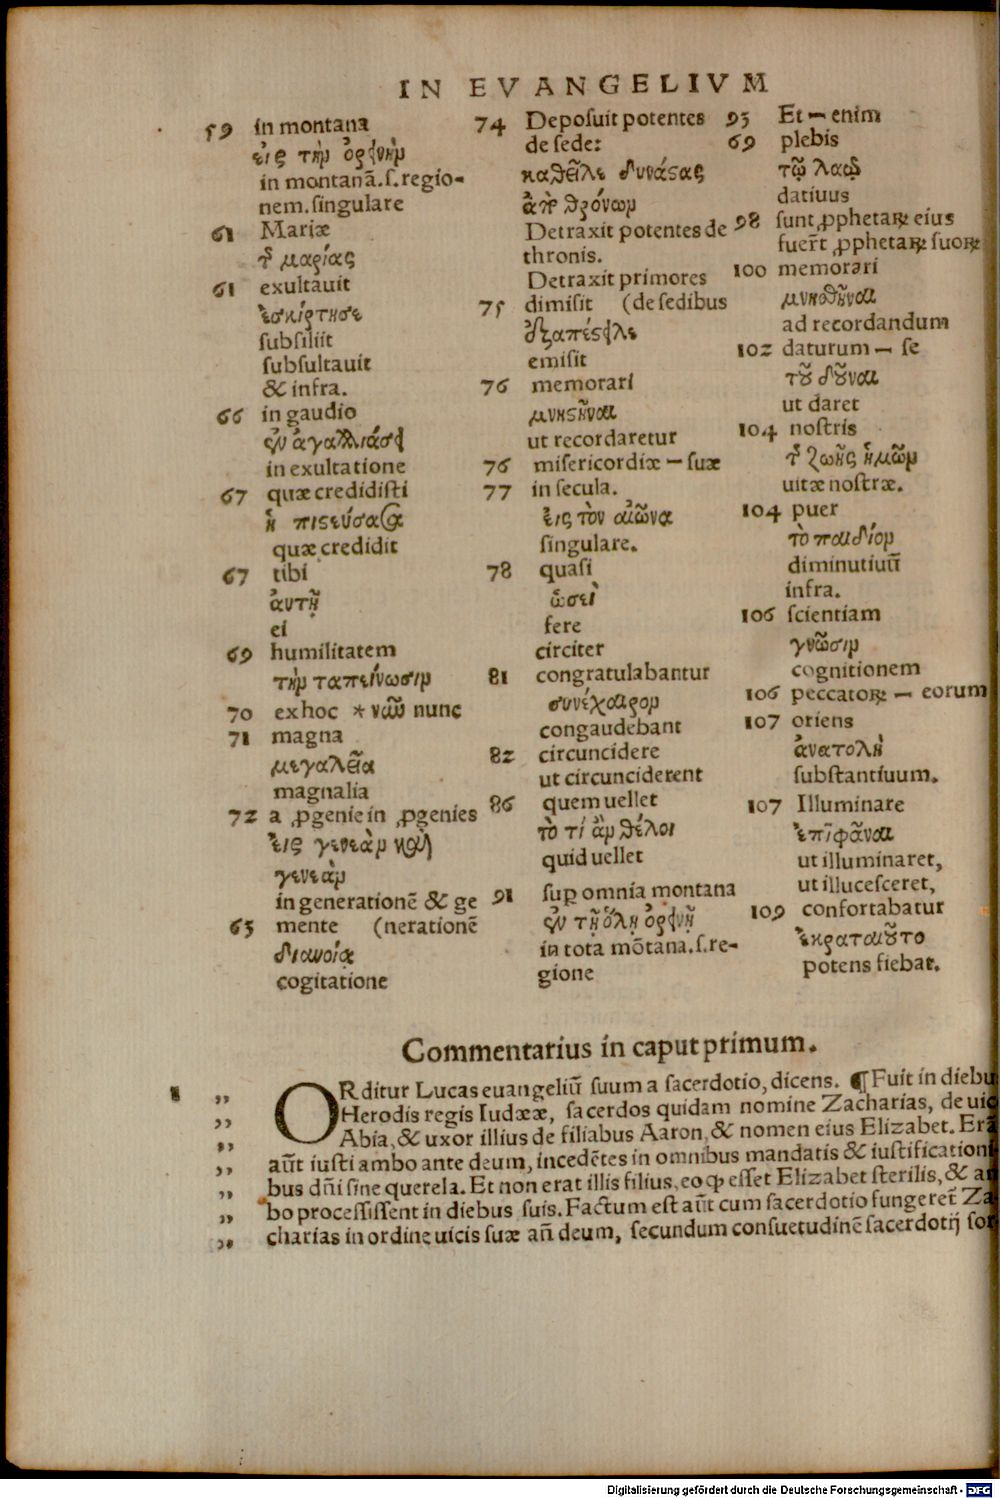 IN EVANGELIVM
59 in montana
εἰς τὴν ὀρεινὴν
in montanã.ſ.regio-
nem.ſingulare
61 Mariæ
τῆς μαρίας
61 exultauit
ἐσκίρτησε
ſubſiliit
ſubſultauit
& infra.
66 in gaudio
ἐν ἀγαλλιάσει
in exultatione
67 quæ credidiſti
ἡ πιστεύσασα
quæ credidit
67 tibi
ἀυτῇ
ei
69 humilitatem
τὴν ταπείνωσιν
70 ex hoc * νῶυ nunc
71 magna
μεγαλεῖα
magnalia
72 a ꝓgenie in ꝓgenies
ἐις γενεὰν καὶ
γενεὰν
in generationẽ & ge
63 mente (nerationẽ
διανοίᾳ
cogitatione
74 Depoſuit potentes
de ſede:
καθεῖλε δυνάστας
ἀπὸ θρόνων
Detraxit potentes de
thronis.
Detraxit primores
75 dimiſit (de ſedibus
ἐξαπέστειλε
emiſit
76 memorari
μνηστῆναι
ut recordaretur
76 miſericordiæ — ſuæ
77 in ſecula.
ἐις τὸν αἰῶνα
ſingulare.
78 quaſi
ὡσεὶ
fere
circiter
81 congratulabantur
συνέχαιρον
congaudebant
82 circuncidere
ut circunciderent
86 quem uellet
τὸ τί ἂν θέλοι
quid uellet
91 suꝑ omnia montana
ἐν τῇ ὅλῃ ὀρεινῇ
in tota mõtana.ſ.re-
gione
93 Et — enim
69 plebis
τῷ λαῷ
datiuus
98 ſunt ꝓphetaꝝ eius
fuer̃t ꝓphetaꝝ ſuoꝝ
100 memorari
μνησθῆναι
ad recordandum
102 daturum — ſe
τοῦ δοῦναι
ut daret
104 noſtris
τῆς ζωῆς ἡμῶν
uitæ noſtræ.
104 puer
τὸ παιδίον
diminutiuũ
infra.
106 ſcientiam
γνῶσιν
cognitionem
106 peccatoꝝ — eorum
107 oriens
ἀνατολὴ
ſubſtantiuum.
107 Illuminare
ἐπιφᾶναι
ut illuminaret,
ut illuceſceret,
109 confortabatur
ἐκραταιοῦτο
potens fiebat.
Commentarius in caput primum.
ORditur Lucas euangeliũ ſuum a ſacerdotio, dicens. ¶ Fuit in diebu
Herodis regis Iudææ, ſacerdos quidam nomine Zacharias, de uic
Abia, & uxor illius de filiabus Aaron, & nomen eius Elizabet. Erã
aũt iuſti ambo ante deum, incedẽtes in omnibus mandatis & iuſtificationi
bus dñi ſine querela. Et non erat illis filius, eo ꝙ eſſet Elizabet ſterilis, & am
bo proceſſiſſent in diebus ſuis. Factum eſt aũt cum ſacerdotio fungeret̃ Za
charias in ordine uicis ſuæ añ deum, ſecundum conſuetudinẽ ſacerdotij for
Digitalisierung gefördert durch die Deutsche Forschungsgemeinschaft - DFG